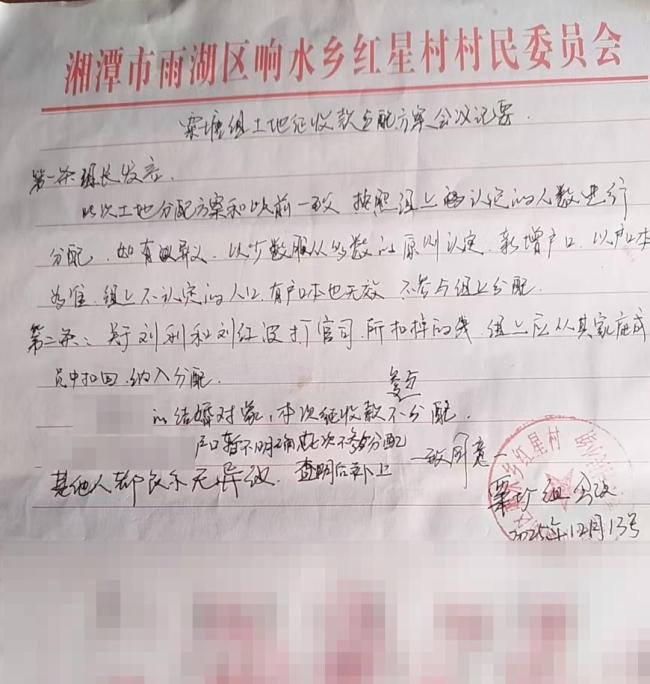 湘潭市雨湖区响水乡红星村村民委员会
组土地征收款分配方案会议记要
第一条组长发言.
此次土地分配方案和以前一致 按照组上认定的人数进行
分配,如有异议,以少数服从多数的原则认定,新增户口,以户口本
为准,组上不认定的人口,有户口本也无效 不参与组上分配.
第二条:关于刘利和刘红波打官司,所扣掉的钱,组上应从其家庭成
员中扣回,纳入分配.
参与
的结婚对象,本次征收款不分配.
户口暂不明确此次不参与分配
其他人都表示无异议. 查明后补上 一致同意
组
2025年12月13号
乡红星村